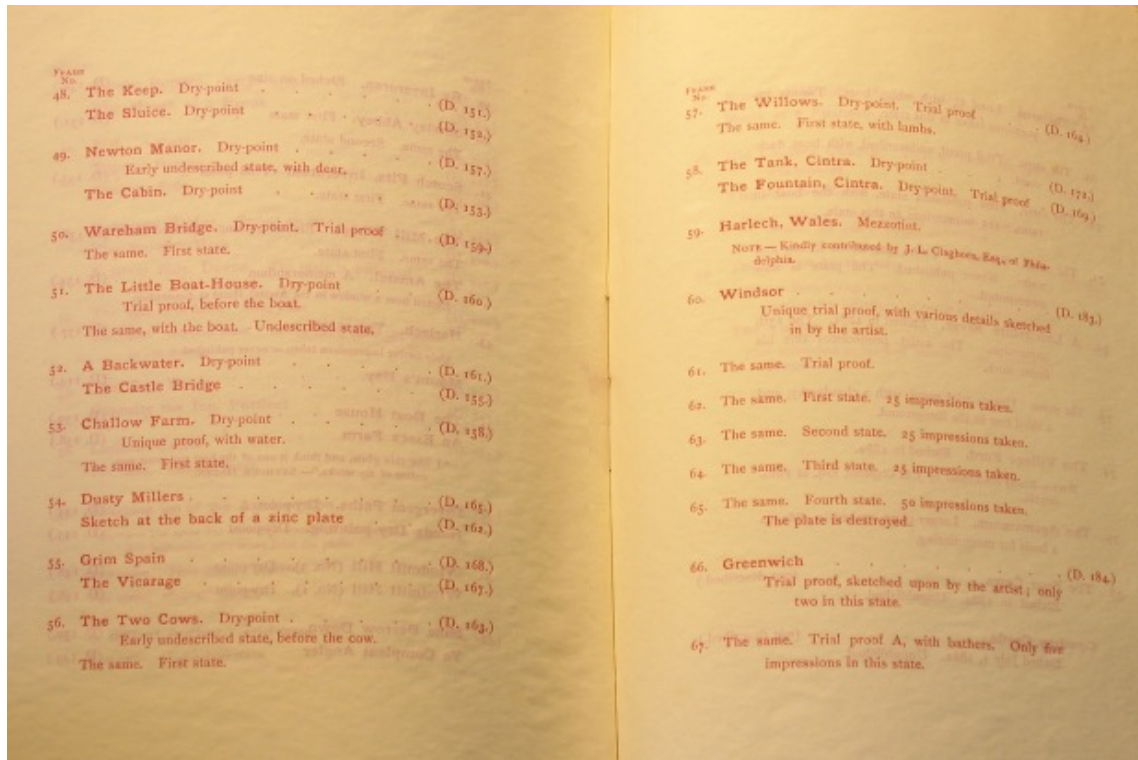 FRAME
No.
48. The Keep. Dry-point . . . . . . (D. 151.)
The Sluice. Dry-point . . . . . (D. 152.)
49. Newton Manor. Dry-point . . . . . (D. 157.)
Early undescribed state, with deer.
The Cabin. Dry-point . . . . . (D. 153.)
50. Wareham Bridge. Dry-point. Trial proof . . (D. 159.)
The same. First state.
51. The Little Boat-House. Dry-point . . . (D. 160.)
Trial proof, before the boat.
The same, with the boat. Undescribed state.
52. A Backwater. Dry-point . . . . . (D. 161.)
The Castle Bridge . . . . . . (D. 155.)
53. Challow Farm. Dry-point . . . . . (D. 158.)
Unique proof, with water.
The same. First state.
54. Dusty Millers . . . . . . . (D. 165.)
Sketch at the back of a zinc plate . . . (D. 162.)
55. Grim Spain . . . . . . . (D. 168.)
The Vicarage . . . . . . . (D. 167.)
56. The Two Cows. Dry-point . . . . . (D. 163.)
Early undescribed state, before the cow.
The same. First state.
FRAME
No.
57. The Willows. Dry-point. Trial proof . . . (D. 164.)
The same. First state, with lambs.
58. The Tank, Cintra. Dry-point . . . . (D. 172.)
The Fountain, Cintra. Dry-point. Trial proof . (D. 169.)
59. Harlech, Wales. Mezzotint.
NOTE — Kindly contributed by J. L. Claghorn, Esq., of Phila-
delphia.
60. Windsor . . . . . . . . (D. 183.)
Unique trial proof, with various details sketched
in by the artist.
61. The same. Trial proof.
62. The same. First state. 25 impressions taken.
63. The same. Second state. 25 impressions taken.
64. The same. Third state. 25 impressions taken.
65. The same. Fourth state. 50 impressions taken.
The plate is destroyed.
66. Greenwich . . . . . . . (D. 184.)
Trial proof, sketched upon by the artist; only
two in this state.
67. The same. Trial proof A, with bathers. Only five
impressions in this state.